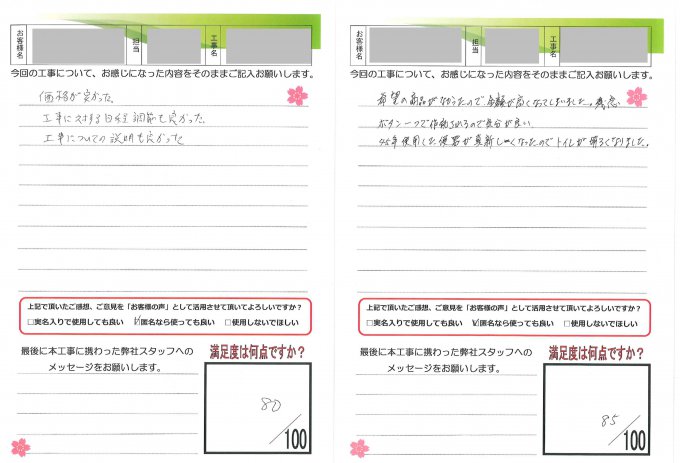 お客様名
担当
工事名
今回の工事について、お感じになった内容をそのままご記入お願いします。
価格が良かった
工事に対する日程調節も良かった
工事についての説明も良かった
上記で頂いたご感想、ご意見を「お客様の声」として活用させて頂いてよろしいですか?
□実名入りで使用しても良い ☑匿名なら使っても良い □使用しないでほしい
最後に本工事に携わった弊社スタッフへの
メッセージをお願いします。
満足度は何点ですか?
80
/100
お客様名
担当
工事名
今回の工事について、お感じになった内容をそのままご記入お願いします。
希望の商品がなかったので金額が高くなってしまいました。残念
ボタン一つで作動されるので気分が良い
45年使用した便器が真新しくなったのでトイレが明るくなりました。
上記で頂いたご感想、ご意見を「お客様の声」として活用させて頂いてよろしいですか?
□実名入りで使用しても良い ☑匿名なら使っても良い □使用しないでほしい
最後に本工事に携わった弊社スタッフへの
メッセージをお願いします。
満足度は何点ですか?
85
/100